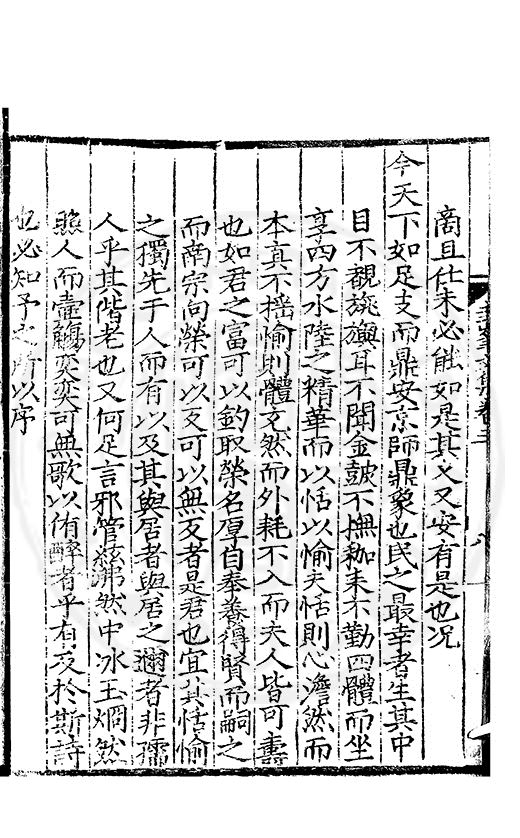 商且仕未必能如是其文又安有是也况
今天下如足支而鼎安京師鼎象也民之最幸者生其中
目不覩旌旟耳不聞金鼓不撫耞耒不勤四體而坐
享四方水陸之精華而以恬以愉夫恬則心澹然而
本真不搖愉則體充然而外耗不入而夫人皆可壽
也如君之富可以釣取榮名厚自奉養得賢而嗣之
而啇宗向榮可以文可以無文者是君也宜其恬愉
之獨先于人而有以及其與居者與居之邇者非孺
人乎其偕老也又何足言邪管絃沸然中冰玉烱然
照人而壺觴奕奕可無歌以侑酵者乎有文於斯詩
也必知予之所以序